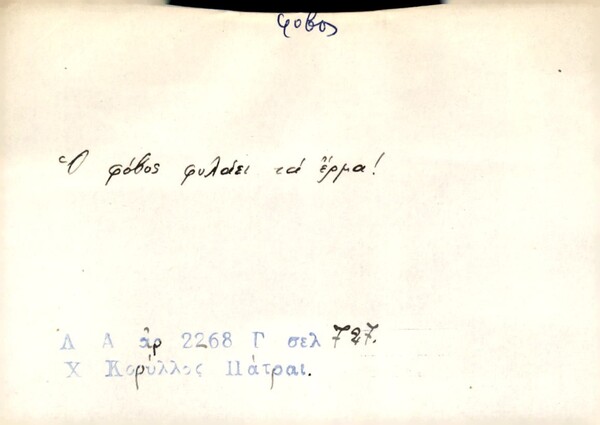 φόβος
Ὁ φόβος φυλάει τά ἔρμα!
Λ Α ἀρ 2268 Γ σελ 727.
Χ Κορύλλος Πάτραι.